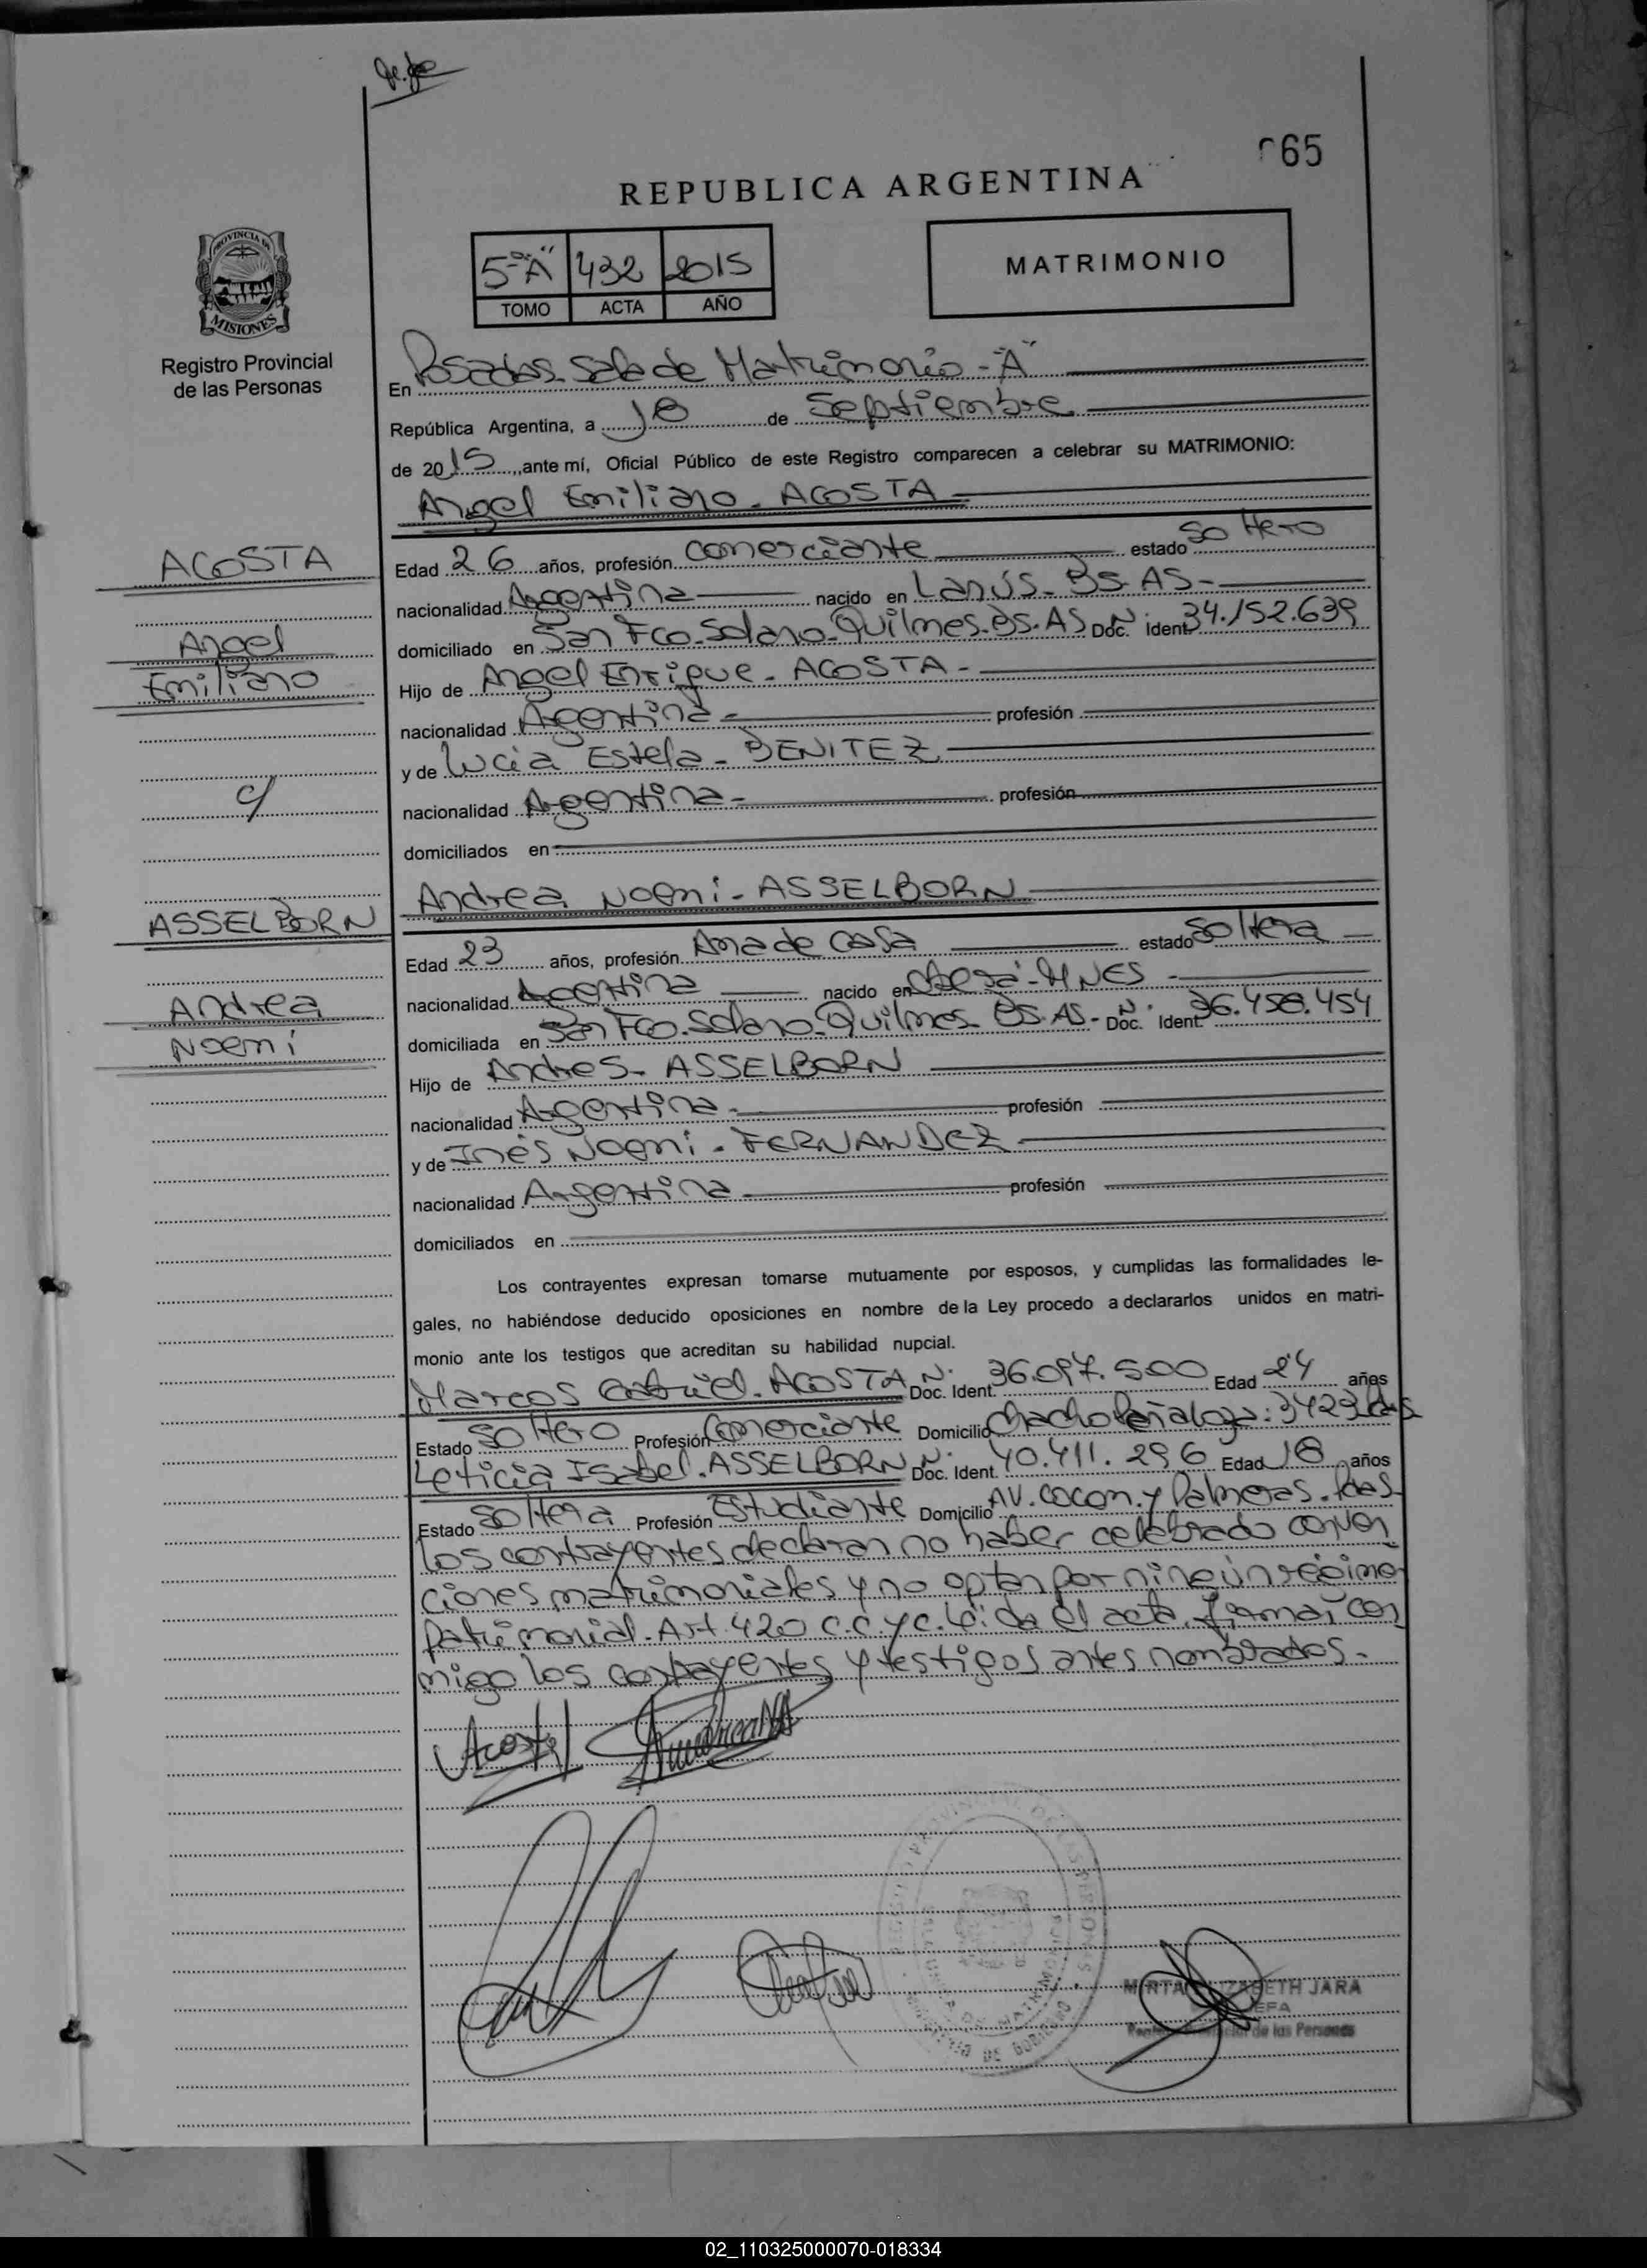 065
REPUBLICA ARGENTINA
5º "A" 432 2015
TOMO ACTA AÑO
MATRIMONIO
PROVINCIA DE
MISIONES
Registro Provincial
de las Personas
En Posadas. Sala de Matrimonio - "A"
República Argentina, a 18 de Septiembre
de 2015, ante mí, Oficial Público de este Registro comparecen a celebrar su MATRIMONIO:
Angel Emiliano - ACOSTA
ACOSTA
Angel
Emiliano
Edad 26 años, profesión comerciante estado soltero
nacionalidad Argentina nacido en Lanús - BS. AS -
domiciliado en San Fco. Solano - Quilmes. BS. AS Doc. Ident. Nº 34.152.639
Hijo de Angel Enrique - ACOSTA -
nacionalidad Argentina - profesión
y de Lucia Estela - BENITEZ
c/
nacionalidad Argentina - profesión
domiciliados en
Andrea Noemi - ASSELBORN
ASSELBORN
Andrea
Noemi
Edad 23 años, profesión Ama de casa estado soltera
nacionalidad Argentina nacido en Oberá - MNES -
domiciliada en San Fco. Solano - Quilmes - BS. AS - Doc. Ident. Nº 36.458.454
Hijo de Andres - ASSELBORN
nacionalidad Argentina - profesión
y de Inés Noemi - FERNANDEZ
nacionalidad Argentina profesión
domiciliados en
Los contrayentes expresan tomarse mutuamente por esposos, y cumplidas las formalidades le-
gales, no habiéndose deducido oposiciones en nombre de la Ley procedo a declararlos unidos en matri-
monio ante los testigos que acreditan su habilidad nupcial.
Marcos Gabriel - ACOSTA Doc. Ident. Nº 36.097.500 Edad 24 años
Estado soltero Profesión Comerciante Domicilio Chacho Peñaloza: 3423 Pdas
Leticia Isabel. ASSELBORN Doc. Ident. Nº 40.411.296 Edad 18 años
Estado soltera Profesión Estudiante Domicilio AV. Cocom. y Palmeras. Pdas
los contrayentes declaran no haber celebrado conven
ciones matrimoniales y no optan por ningún régimen
patrimonial. Art. 420 C.C. y C. Leída el acta, firman con
migo los contrayentes y testigos antes nombrados.-
Acosta
MIRTA ELIZABETH JARA
JEFA
de las Personas
02_110325000070-018334